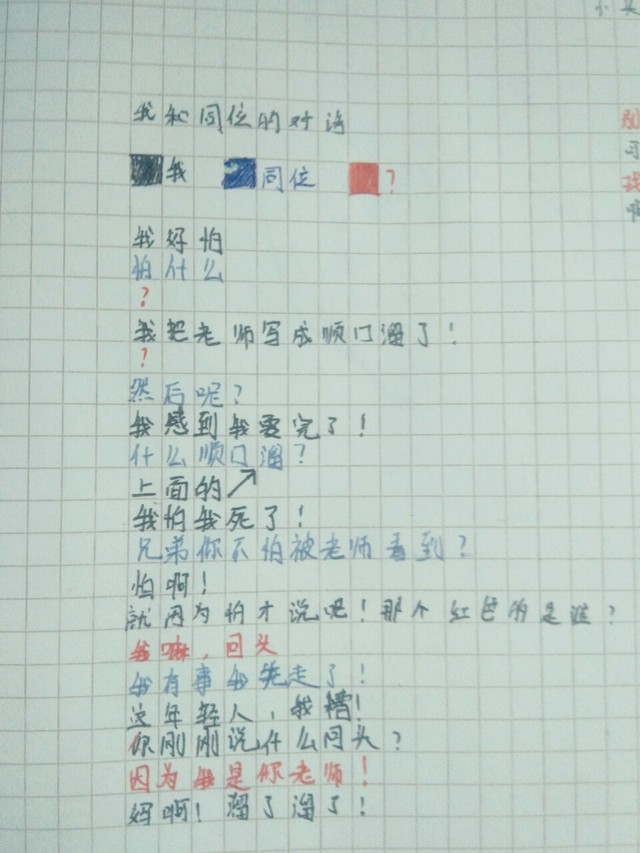 我和同位的对话
我 同位 ?
我好怕
怕什么
?
我把老师写成顺口溜了!
?
然后呢?
我感到我要完了!
什么顺口溜?
上面的↗
我怕我死了!
兄弟你不怕被老师看到?
怕啊!
就因为怕才说吧!那个红色的是谁?
我嘛,回头
我有事我先走了!
这年轻人,我糟!
你刚刚说什么回头?
因为我是你老师!
妈啊!溜了溜了!